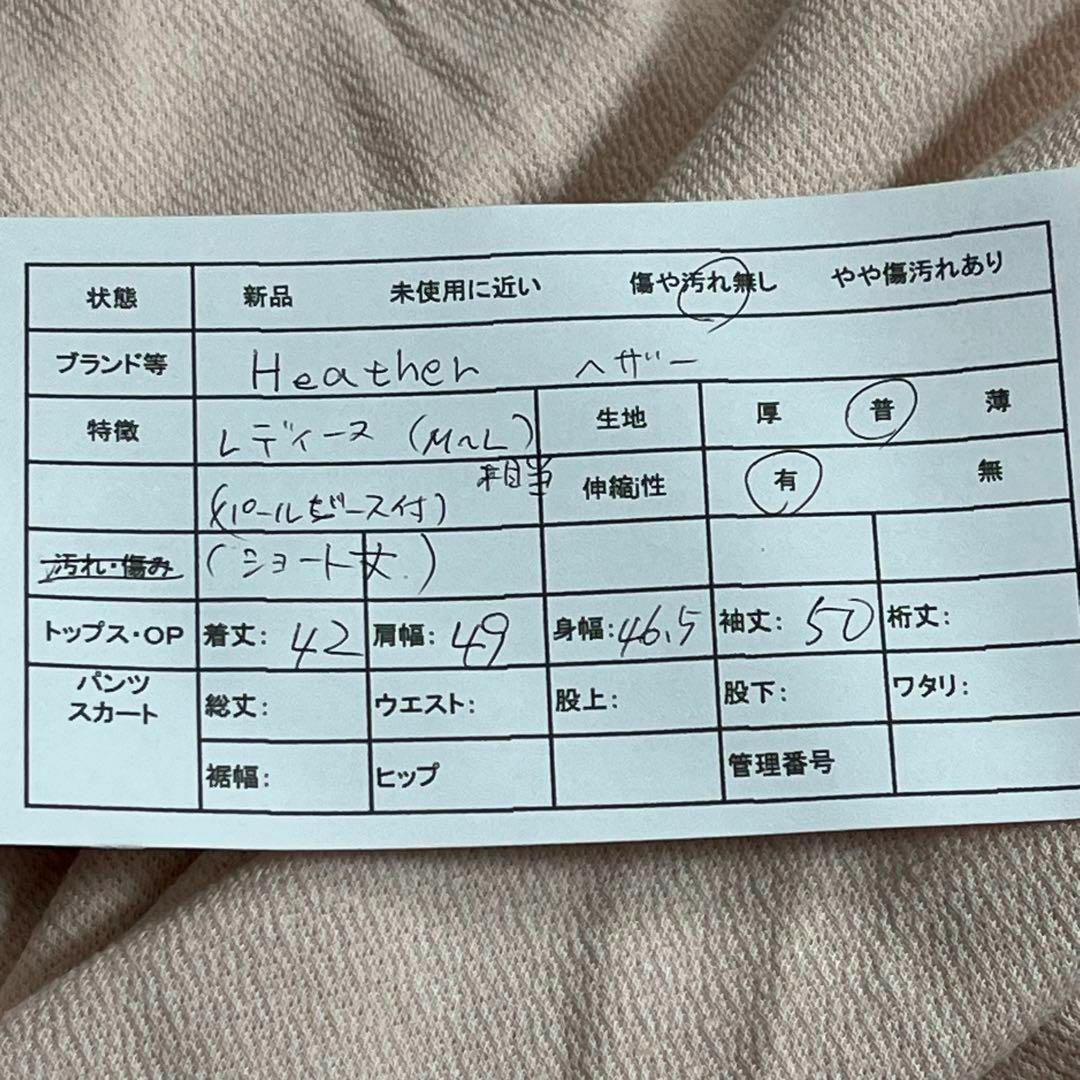 状態 新品 未使用に近い 傷や汚れ無し やや傷汚れあり
ブランド等 Heather ヘザー
特徴 レディース (M~L) 生地 厚 普 薄
相当
(パールビーズ付) 伸縮j性 有 無
汚れ・傷み (ショート丈)
トップス・OP 着丈: 42 肩幅: 49 身幅: 46.5 袖丈: 50 裄丈:
パンツ
スカート 総丈: ウエスト: 股上: 股下: ワタリ:
裾幅: ヒップ 管理番号